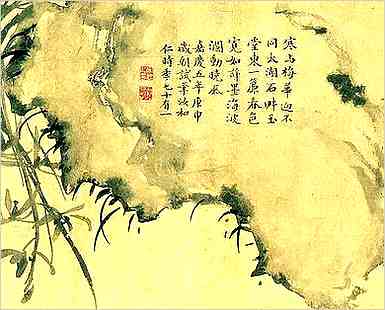 寒与梅華迥不
同太湖石畔玉
堂東一簾春色
寛如許墨海波
瀾動曉風
嘉慶五年庚申
歳朝試筆
仁時年七十有一